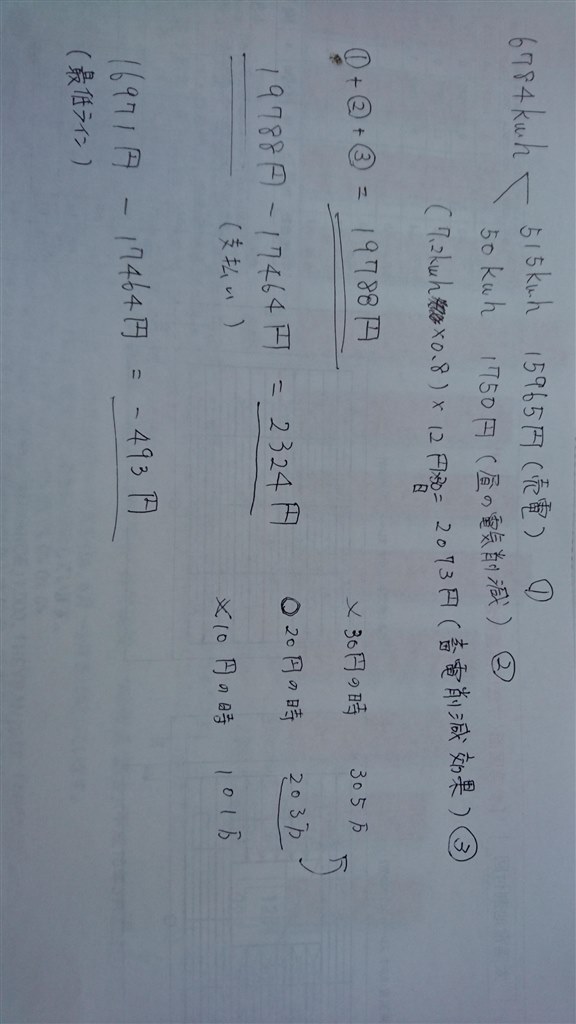 6784kwh < 515kwh 15965円(売電) ①
50kwh 1750円(昼の電気削減) ②
(7.2kwh ×0.8)×12円 = 2073円(蓄電削減効果) ③
①+②+③ = 19788円
19788円 - 17464円 = 2324円
(支払い)
16971円 - 17464円 = -493円
(最低ライン)
×30円の時 305万
○20円の時 203万
×10円の時 101万